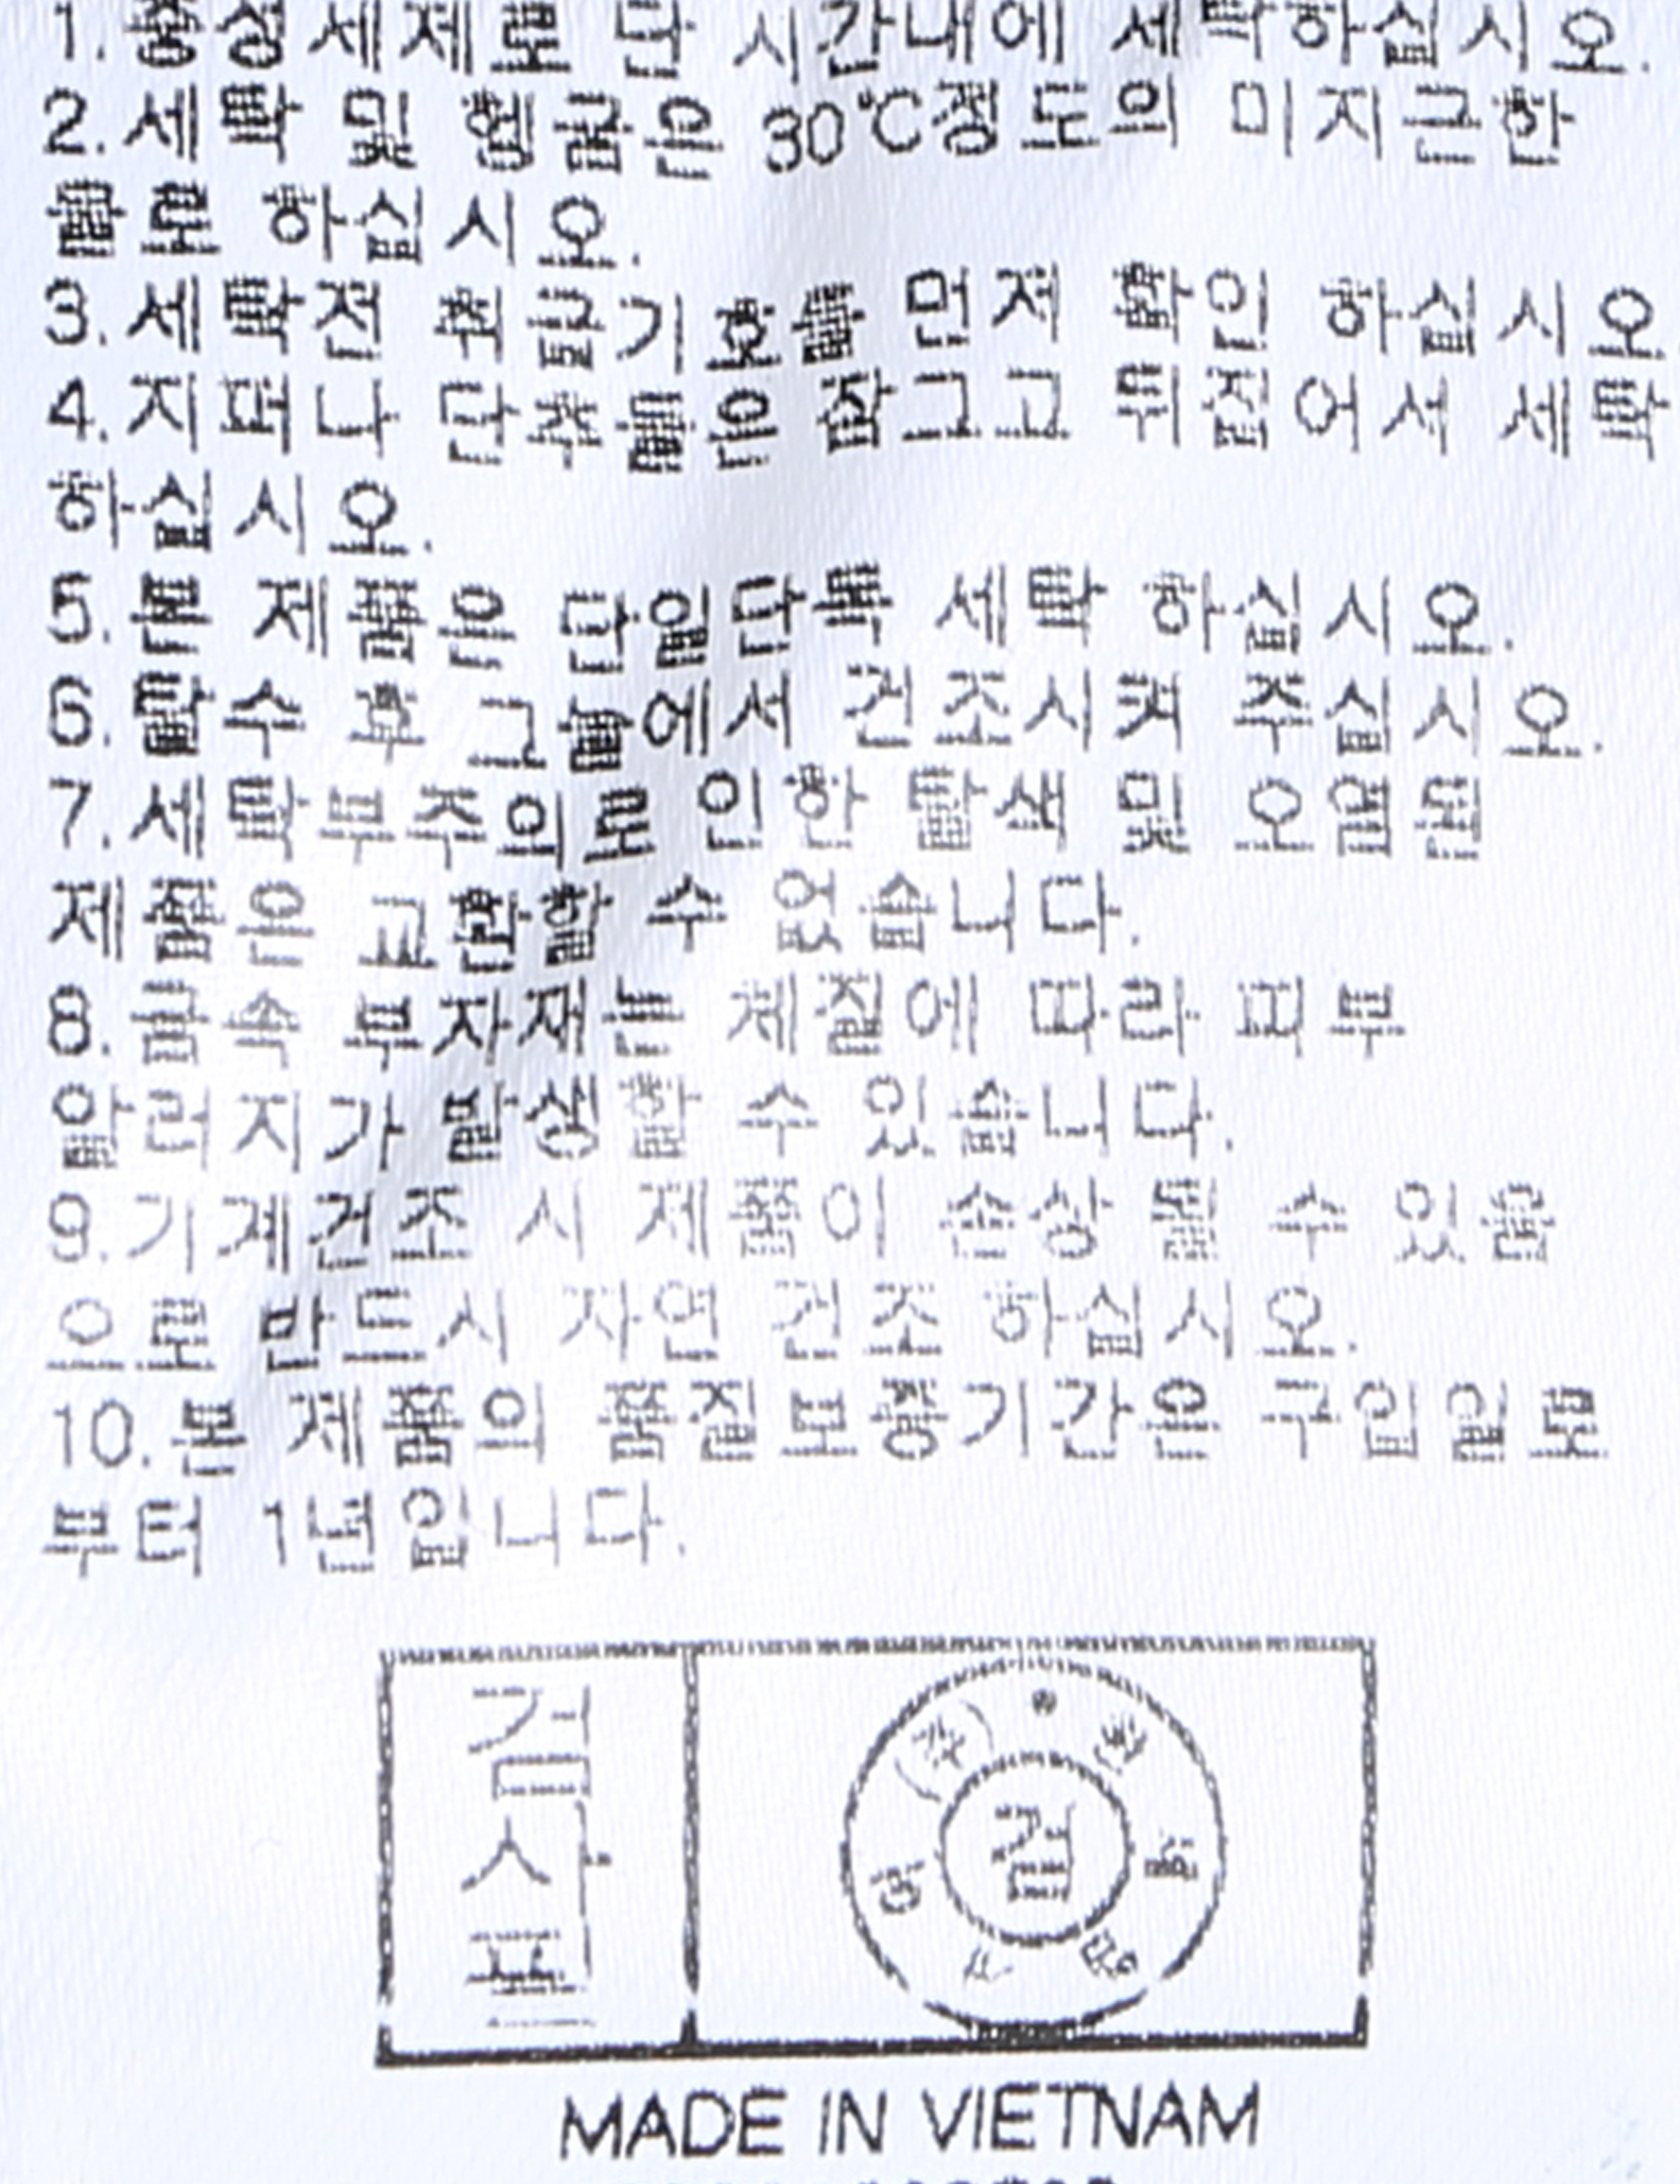 1. 중성세제로 단 시간내에 세탁하십시오.
2. 세탁 및 헹굼은 30℃정도의 미지근한
물로 하십시오.
3. 세탁전 취급기호를 먼저 확인 하십시오
4. 지퍼나 단추들은 잠그고 뒤집어서 세탁
하십시오.
5. 본 제품은 단일단독 세탁 하십시오.
6. 탈수 후 그늘에서 건조시켜 주십시오.
7. 세탁부주의로 인한 탈색 및 오염된
제품은 교환할 수 없습니다.
8. 금속 부자재는 체질에 따라 피부
알러지가 발생할 수 있습니다.
9. 기계건조 시 제품이 손상 될 수 있음
으로 반드시 자연 건조 하십시오.
10. 본 제품의 품질보증기간은 구입일로
부터 1년입니다.
검사표
검
MADE IN VIETNAM